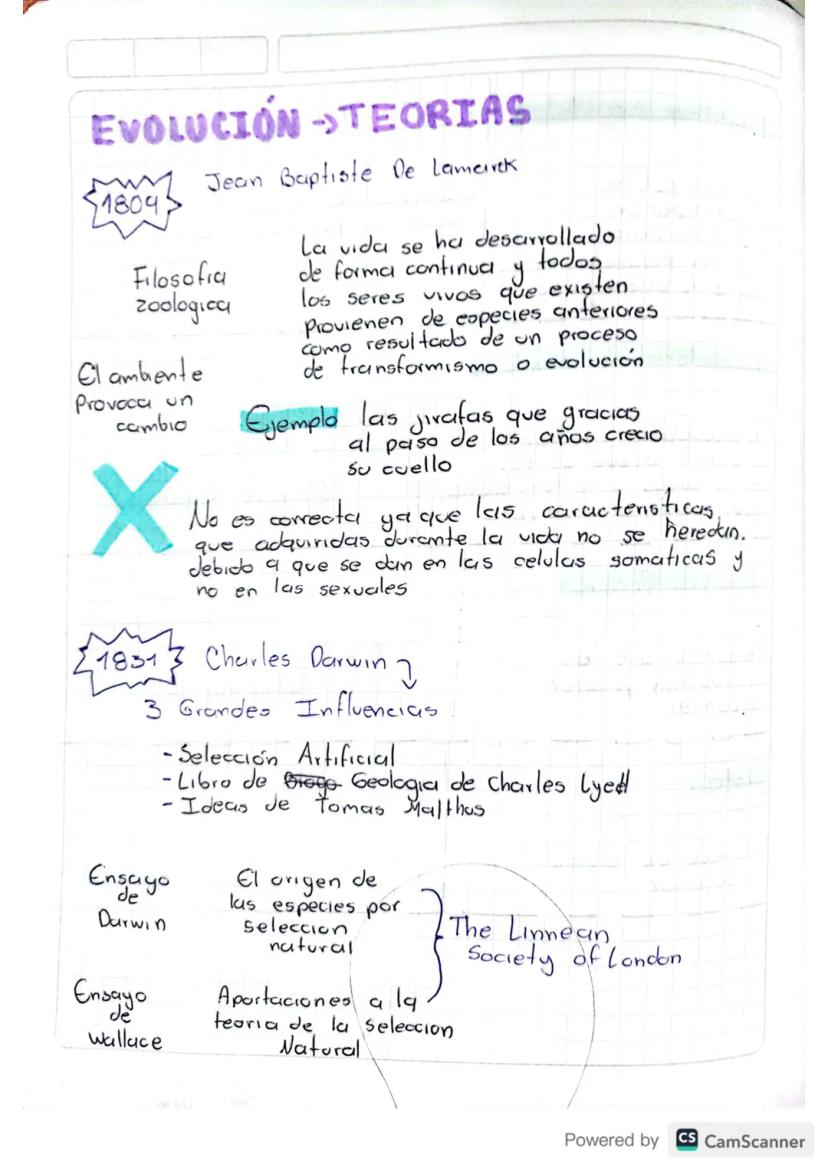 EVOLUCIÓN → TEORIAS
1809
Jean Baptiste De Lamarck
Filosofia
zoologica
La vida se ha desarrollado
de forma continua y todos
los seres vivos que existen
Provienen de especies anteriores
como resultado de un proceso
de transformismo o evolución
El ambiente
Provoca un
cambio
Ejemplo las jirafas que gracias
al paso de los años crecio
su cuello
X
No es correcta ya que las caracteristicas
que adquiridas durante la vida no se heredan.
debido a que se dan en las celulas somaticas y
no en las sexuales
1831 Charles Darwin
3 Grandes Influencias
- Selección Artificial
- Libro de Geologia de Charles Lyell
- Ideas de Tomas Malthus
Ensayo
de
Darwin
El origen de
las especies por
seleccion
natural
The Linnean
Society of London
Ensayo
de
Wallace
Aportaciones a la
teoria de la seleccion
Natural
Powered by CS CamScanner